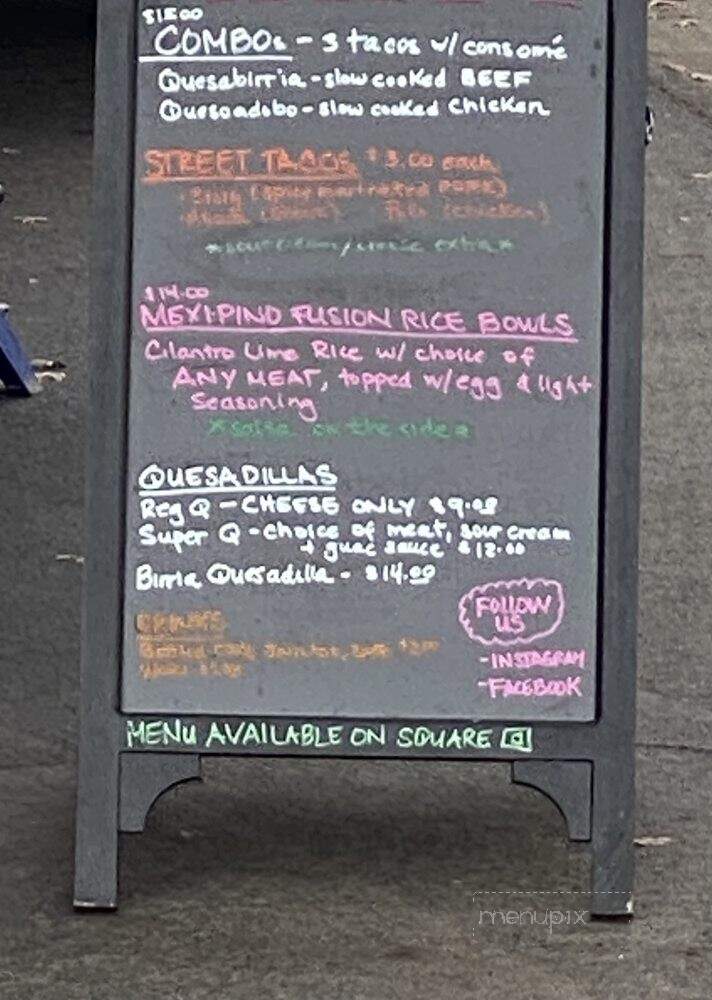 $15.00
COMBOs - 3 tacos w/ consomé
Quesabirria - slow cooked BEEF
Quesoadobo - slow cooked Chicken
STREET TACOS $3.00 each
(spicy marinated PORK)
(chicken)
*sour cream/ extra*
$14.00
MEXIPINO FUSION RICE BOWLS
Cilantro Lime Rice w/ choice of
ANY MEAT, topped w/ egg & light
Seasoning
*salsa on the side*
QUESADILLAS
Reg Q - CHEESE ONLY $9.00
Super Q - choice of meat, sour cream
+ guac sauce $12.00
Birria Quesadilla - $14.00
DRINKS
FOLLOW
US
- INSTAGRAM
- FACEBOOK
MENU AVAILABLE ON SQUARE
menupix